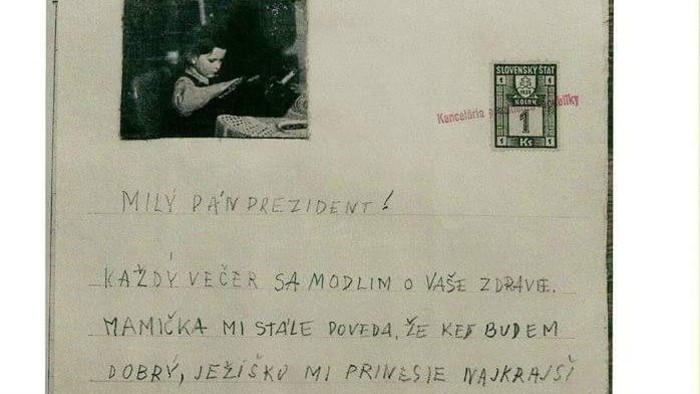 SLOVENSKÝ ŠTÁT
1 1
1939
KOLOK
1
1 Ks 1
Kancelária republiky
MILÝ PÁN PREZIDENT!
KAŽDÝ VEČER SA MODLIM O VAŠE ZDRAVIE.
MAMIČKA MI STÁLE POVEDA, ŽE KEĎ BUDEM
DOBRÝ, JEŽÍŠKO MI PRINESIE NAJKRAJŠÍ